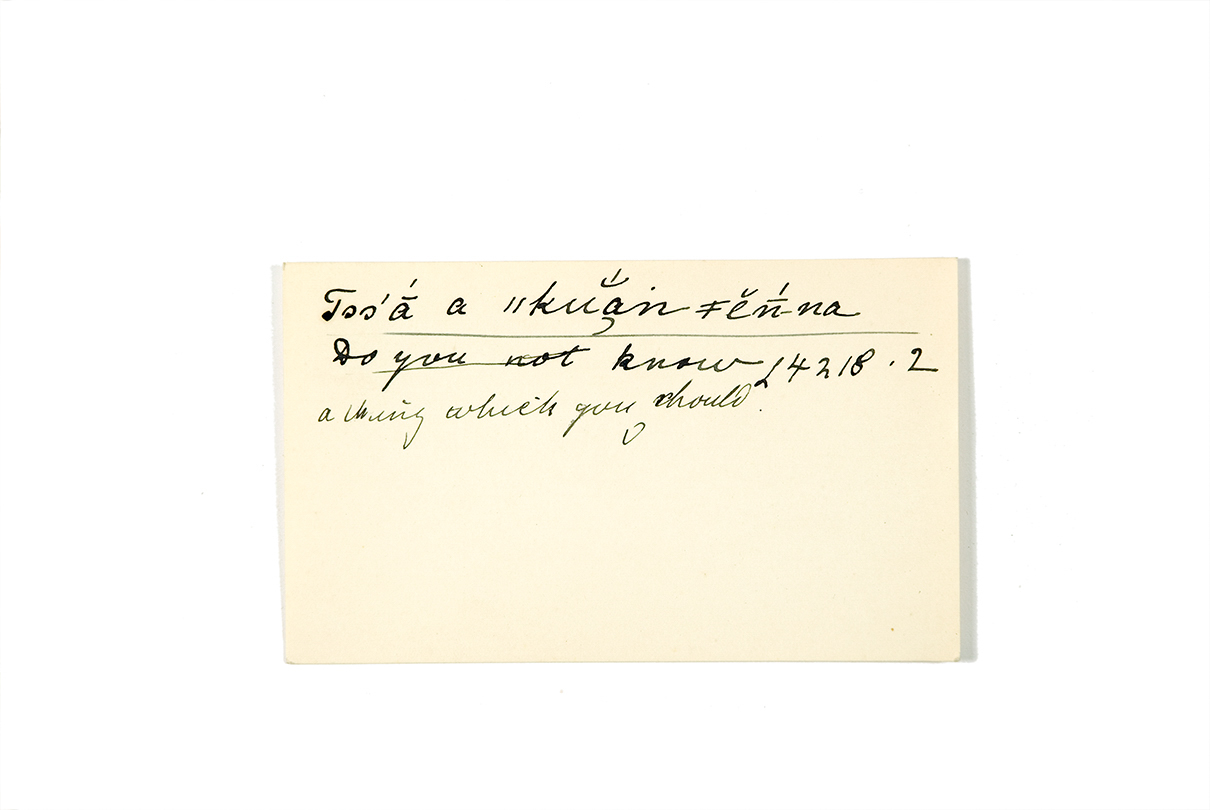 Tss'ā́ a ǁkṵắṅ ǂĕṅ́-na
Do you not know L 4218 . 2
a thing which you should.